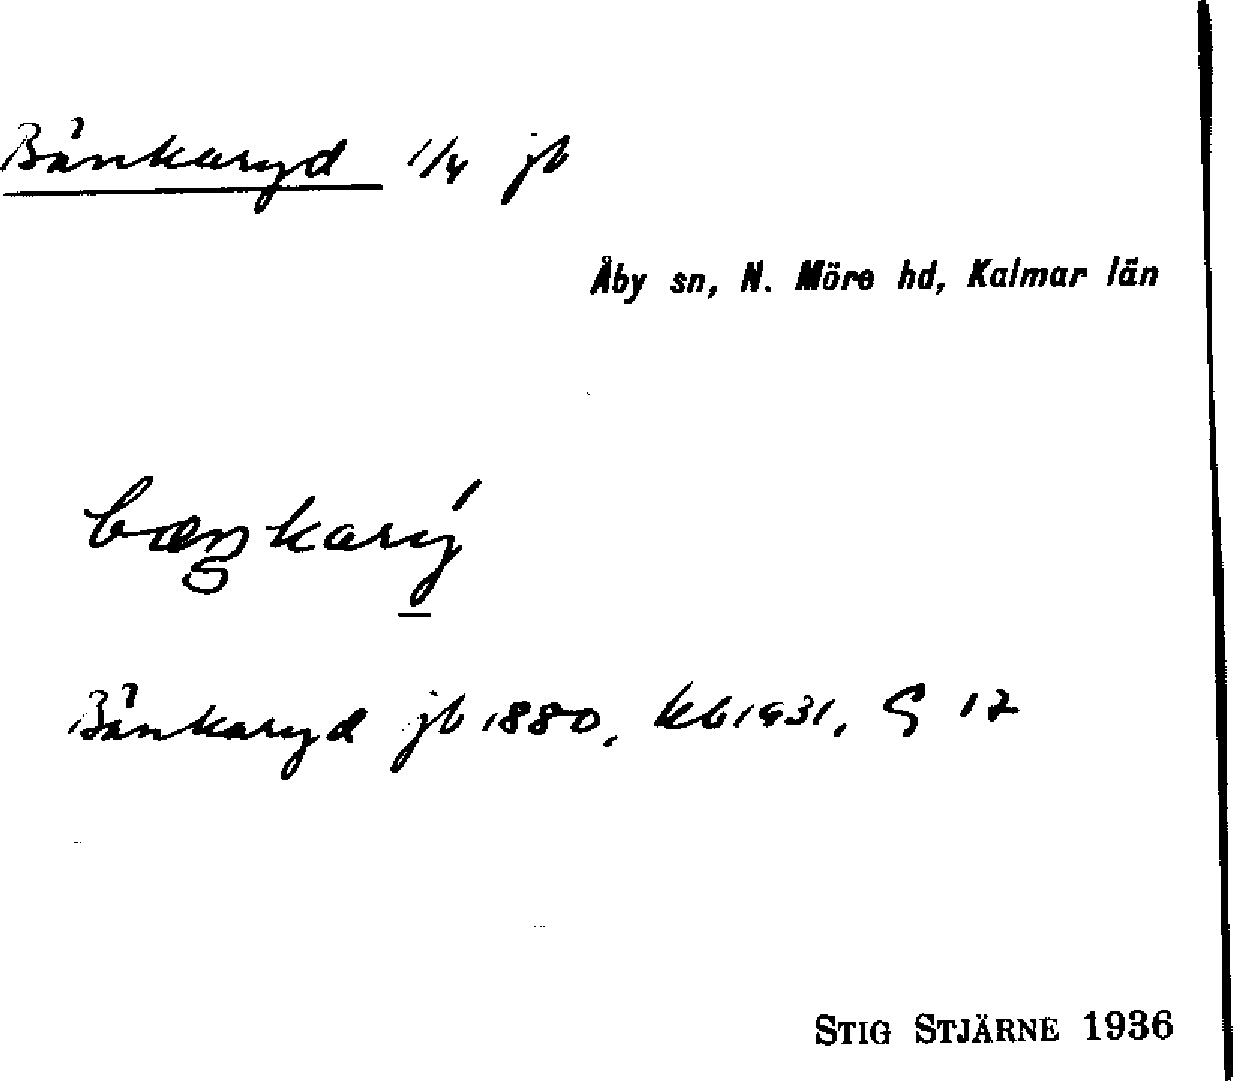 Bänkaryd 1/4 jb
Åby sn, N. Möre hd, Kalmar län
bæŋkarý
Bänkaryd jb 1880, kb 1931, G 12
STIG STJÄRNE 1936